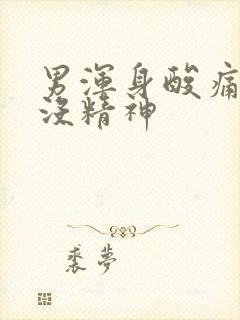 男渾身酸痛
沒精神
裘夢